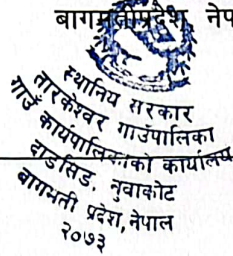 बागमतीप्रदेश, नेप
स्थानिय सरकार
तारकेश्वर गाउँपालिका
गाउँ कार्यपालिकाको कार्यालय
दाङसिङ, नुवाकोट
बागमती प्रदेश, नेपाल
२०७३